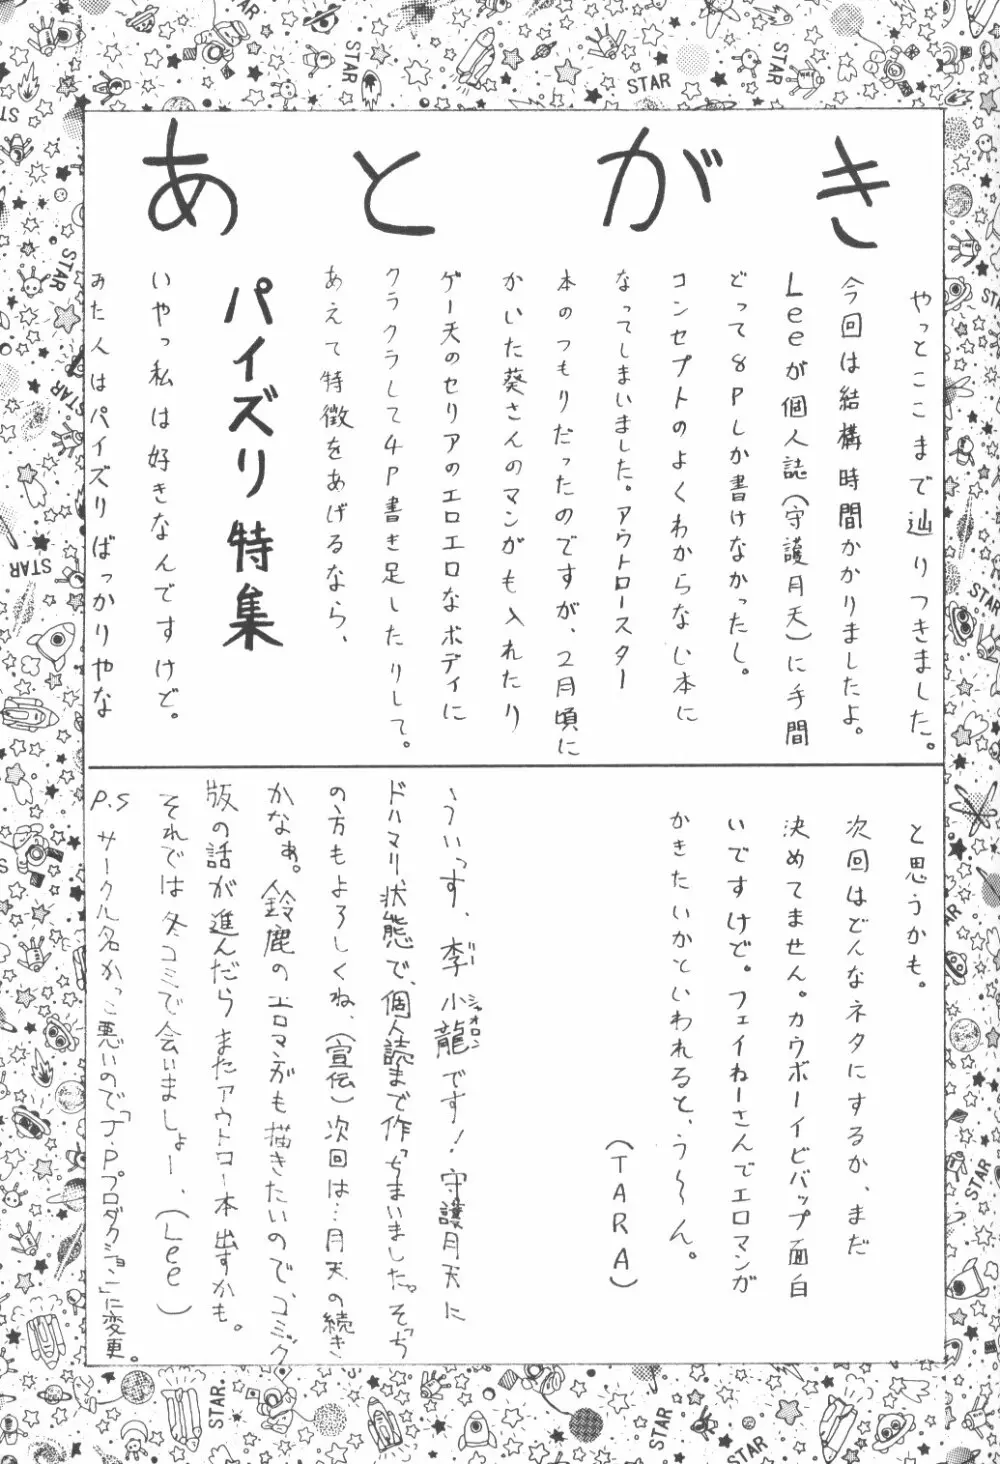 あとがき
やっとここまで辿りつきました。
今回は結構時間かかりましたよ。
Leeが個人誌(守護月天)に手間
どって8Pしか書けなかったし。
コンセプトのよくわからない本に
なってしまいました。アウトロースター
本のつもりだったのですが、2月頃に
かいた葵さんのマンガも入れたり
ゲー天のセリアのエロエロなボディに
クラクラして4P書き足したりして。
あえて特徴をあげるなら、
パイズリ特集
いやっ私は好きなんですけど。
みた人はパイズリばっかりやな
と思うかも。
次回はどんなネタにするか、まだ
決めてません。カウボーイビバップ面白
いですけど。フェイねーさんでエロマンガ
かきたいかといわれると、う〜ん。
(TARA)
ういっす、李小龍です!守護月天に
リー
シャオロン
ドハマリ状態で、個人誌まで作っちまいました。そっち
の方もよろしくね、(宣伝)次回は…月天の続き
かなぁ。鈴鹿のエロマンガも描きたいので、コミック
版の話が進んだらまたアウトロー本出すかも。
それでは冬コミで会いましょー、(Lee)
P.S サークル名かっこ悪いので「J.Pプロダクション」に変更。
STAR
STAR
STAR
STAR
STAR
STAR
STAR
STAR
STAR
STAR
STAR
STAR